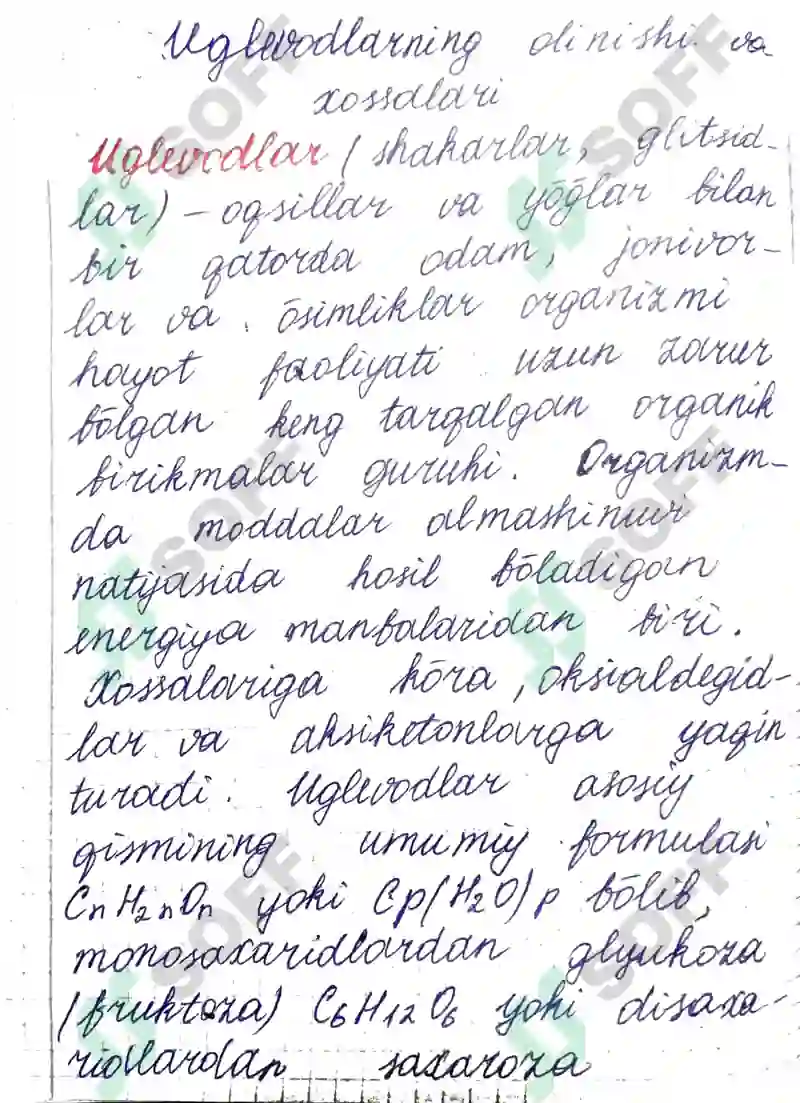 Uglevodlarning olinishi va
xossalari
Uglevodlar (shakarlar, glitsid-
lar) – oqsillar va yōḡlar bilan
bir qatorda odam, jonivor-
lar va ōsimliklar organizmi
hayot faoliyati uzun zarur
bōlgan keng tarqalgan organik
birikmalar guruhi. Organizm-
da moddalar almashinuvi
natijasida hosil bōladigan
energiya manbalaridan biri.
Xossalariga kōra, oksialdegid-
lar va aksiketonlarga yaqin
turadi. Uglevodlar asosiy
qismining umumiy formulasi
CnH2nOn yoki Cp(H2O)p bōlib,
monosaxaridlardan glyukoza
(fruktoza) C6H12O6 yoki disaxa-
ridlardan saxaroza
SOFF
SOFF
SOFF
SOFF
SOFF
SOFF